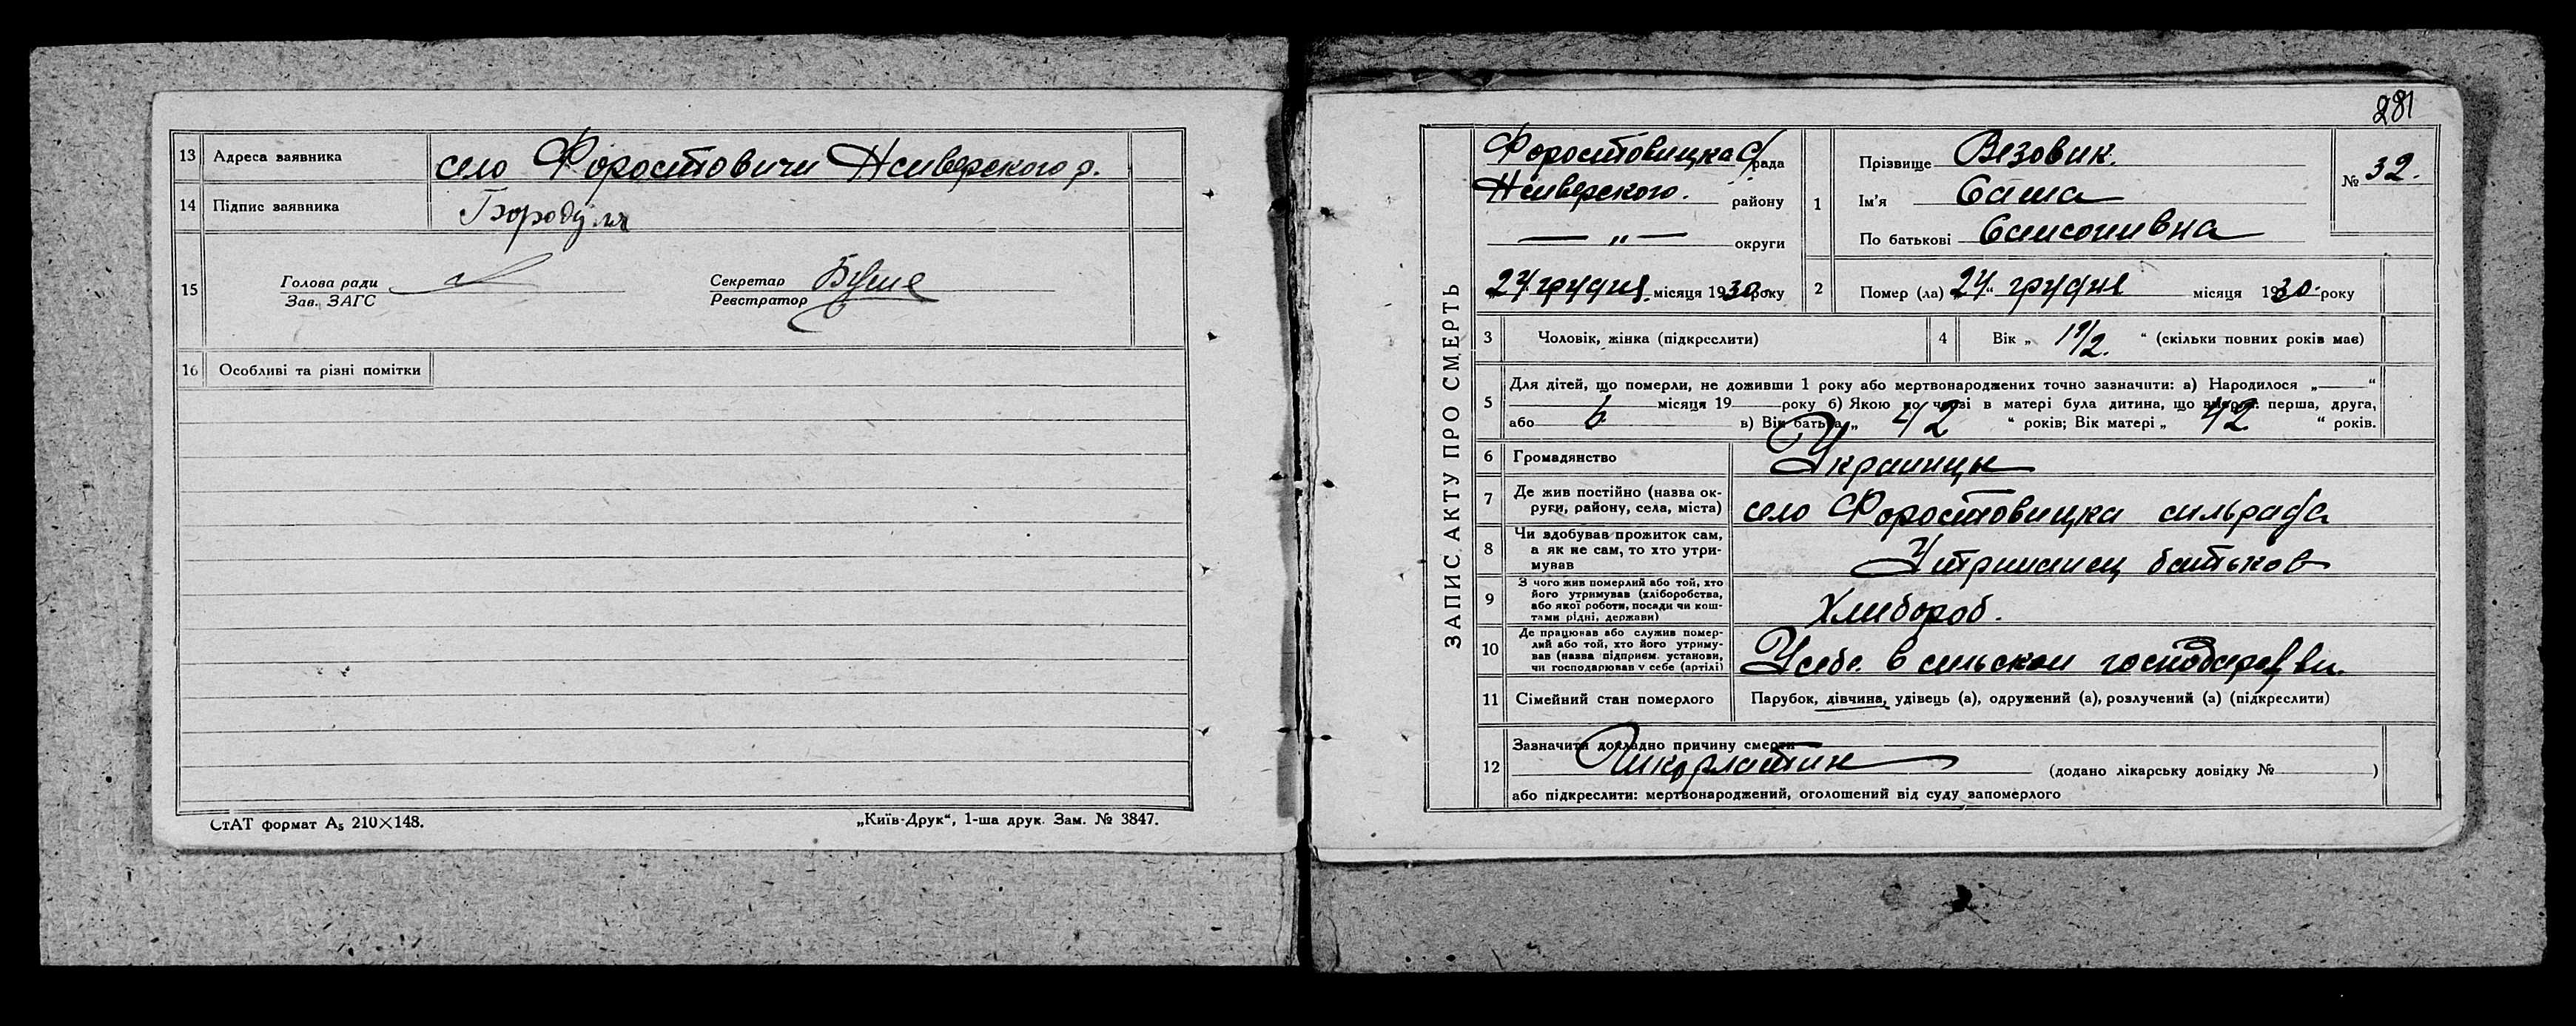 13 Адреса заявника село Форостовичи Нсиверского р.
14 Підпис заявника Бородуля
15 Голова ради
Зав. ЗАГС
Секретар
Реєстратор
16 Особливі та різні помітки
СтАТ формат А₅ 210×148.
„Київ-Друк“, 1-ша друк. Зам. № 3847.
281
ЗАПИС АКТУ ПРО СМЕРТЬ
Форостовицка С/рада
Нсиверского. району
— „ — округи
24 грудня місяця 1930 року
1 Прізвище Везовик.
Ім'я Саша
По батькові Самсонивна
№ 32.
2 Помер (ла) „24“ грудня місяця 1930. року
3 Чоловік, жінка (підкреслити)
4 Вік „ 1 1/2. “ (скільки повних років має)
5 Для дітей, що померли, не доживши 1 року або мертвонароджених точно зазначити: а) Народилося „——“
місяця 19 року б) Якою по черзі в матері була дитина, що вмерла: перша, друга,
або 6 в) Вік батька „ 42 “ років; Вік матері „ 42 “ років.
6 Громадянство Украинци
7 Де жив постійно (назва ок-
руги, району, села, міста) село Форостовицка сильрада
8 Чи здобував прожиток сам,
а як не сам, то хто утри-
мував Утриманец батьков
9 З чого жив померлий або той, хто
його утримував (хліборобства,
або якої роботи, посади чи кош-
тами рідні, держави) Хлибороб.
10 Де працював або служив помер-
лий або той, хто його утриму-
вав (назва підприєм. установи,
чи господарював у себе (артілі) У себе в сильском
11 Сімейний стан померлого Парубок, дівчина, удівець (а), одружений (а), розлучений (а) (підкреслити)
12 Зазначити докладно причину смерти
(додано лікарську довідку № )
або підкреслити: мертвонароджений, оголошений від суду запомерлого